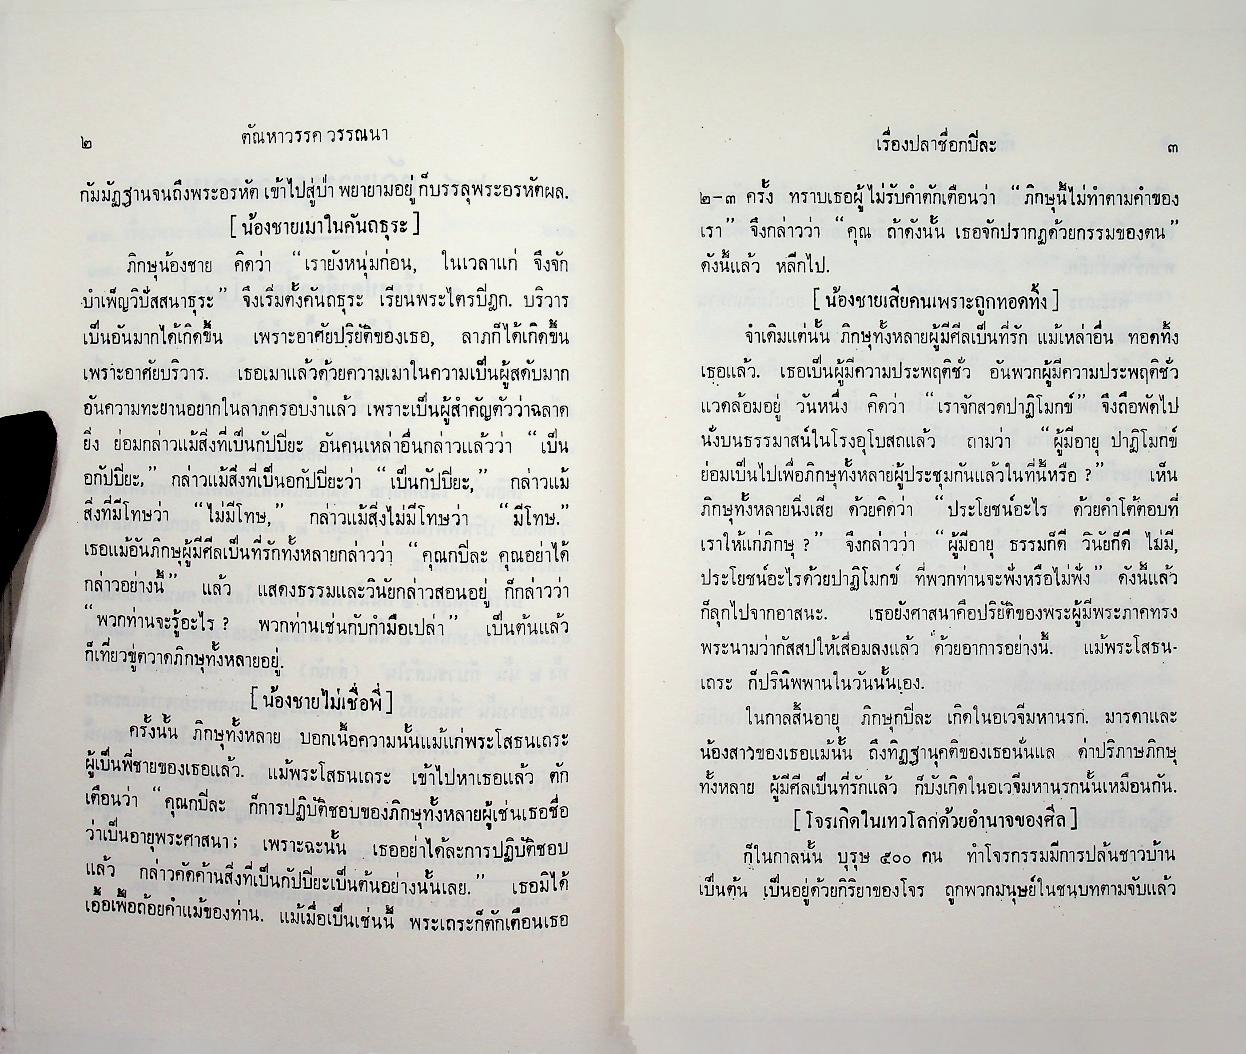 ๒
ตัณหาวรรค วรรณนา
กัมมัฏฐานจนถึงพระอรหัต เข้าไปสู่ป่า พยายามอยู่ ก็บรรลุพระอรหัตผล.
[ น้องชายเมาในคันถธุระ ]
ภิกษุน้องชาย คิดว่า “เรายังหนุ่มก่อน, ในเวลาแก่ จึงจัก
บำเพ็ญวิปัสสนาธุระ” จึงเริ่มตั้งคันถธุระ เรียนพระไตรปิฎก. บริวาร
เป็นอันมากได้เกิดขึ้น เพราะอาศัยปริยัติของเธอ, ลาภก็ได้เกิดขึ้น
เพราะอาศัยบริวาร. เธอเมาแล้วด้วยความเมาในความเป็นผู้สดับมาก
อันความทะยานอยากในลาภครอบงำแล้ว เพราะเป็นผู้สำคัญตัวว่าฉลาด
ยิ่ง ย่อมกล่าวแม้สิ่งที่เป็นกัปปิยะ อันคนเหล่าอื่นกล่าวแล้วว่า “เป็น
อกัปปิยะ,” กล่าวแม้สิ่งที่เป็นอกัปปิยะว่า “เป็นกัปปิยะ,” กล่าวแม้
สิ่งที่มีโทษว่า “ไม่มีโทษ,” กล่าวแม้สิ่งไม่มีโทษว่า “มีโทษ.”
เธอแม้อันภิกษุผู้มีศีลเป็นที่รักทั้งหลายกล่าวว่า “คุณกปิละ คุณอย่าได้
กล่าวอย่างนี้” แล้ว แสดงธรรมและวินัยกล่าวสอนอยู่ ก็กล่าวว่า
“พวกท่านจะรู้อะไร ? พวกท่านเช่นกับกำมือเปล่า” เป็นต้นแล้ว
ก็เที่ยวขู่ตวาดภิกษุทั้งหลายอยู่.
[ น้องชายไม่เชื่อพี่ ]
ครั้งนั้น ภิกษุทั้งหลาย บอกเนื้อความนั้นแม้แก่พระโสธนเถระ
ผู้เป็นพี่ชายของเธอแล้ว. แม้พระโสธนเถระ เข้าไปหาเธอแล้ว ตัก
เตือนว่า “คุณกปิละ ก็การปฏิบัติชอบของภิกษุทั้งหลายผู้เช่นเธอชื่อ
ว่าเป็นอายุพระศาสนา; เพราะฉะนั้น เธออย่าได้ละการปฏิบัติชอบ
แล้ว กล่าวคัดค้านสิ่งที่เป็นกัปปิยะเป็นต้นอย่างนั้นเลย.” เธอมิได้
เอื้อเฟื้อถ้อยคำแม้ของท่าน. แม้เมื่อเป็นเช่นนี้ พระเถระก็ตักเตือนเธอ
เรื่องปลาชื่อกปิละ
๓
๒-๓ ครั้ง ทราบเธอผู้ไม่รับคำตักเตือนว่า “ภิกษุนี้ไม่ทำตามคำของ
เรา” จึงกล่าวว่า “คุณ ถ้าดังนั้น เธอจักปรากฏด้วยกรรมของตน”
ดังนี้แล้ว หลีกไป.
[ น้องชายเสียคนเพราะถูกทอดทิ้ง ]
จำเดิมแต่นั้น ภิกษุทั้งหลายผู้มีศีลเป็นที่รัก แม้เหล่าอื่น ทอดทิ้ง
เธอแล้ว. เธอเป็นผู้มีความประพฤติชั่ว อันพวกผู้มีความประพฤติชั่ว
แวดล้อมอยู่ วันหนึ่ง คิดว่า “เราจักสวดปาฏิโมกข์” จึงถือพัดไป
นั่งบนธรรมาสน์ในโรงอุโบสถแล้ว ถามว่า “ผู้มีอายุ ปาฏิโมกข์
ย่อมเป็นไปเพื่อภิกษุทั้งหลายผู้ประชุมกันแล้วในที่นี้หรือ ?” เห็น
ภิกษุทั้งหลายนิ่งเสีย ด้วยคิดว่า “ประโยชน์อะไร ด้วยคำโต้ตอบที่
เราให้แก่ภิกษุ ?” จึงกล่าวว่า “ผู้มีอายุ ธรรมก็ดี วินัยก็ดี ไม่มี,
ประโยชน์อะไรด้วยปาฏิโมกข์ ที่พวกท่านจะฟังหรือไม่ฟัง” ดังนี้แล้ว
ก็ลุกไปจากอาสนะ. เธอยังศาสนาคือปริยัติของพระผู้มีพระภาคทรง
พระนามว่ากัสสปให้เสื่อมลงแล้ว ด้วยอาการอย่างนี้. แม้พระโสธน-
เถระ ก็ปรินิพพานในวันนั้นเอง.
ในกาลสิ้นอายุ ภิกษุกปิละ เกิดในอเวจีมหานรก. มารดาและ
น้องสาวของเธอแม้นั้น ถึงทิฏฐานุคติของเธอนั่นแล ด่าปริภาษภิกษุ
ทั้งหลาย ผู้มีศีลเป็นที่รักแล้ว ก็บังเกิดในอเวจีมหานรกนั้นเหมือนกัน.
[ โจรเกิดในเทวโลกด้วยอำนาจของศีล ]
ก็ในกาลนั้น บุรุษ ๕๐๐ คน ทำโจรกรรมมีการปล้นชาวบ้าน
เป็นต้น เป็นอยู่ด้วยกิริยาของโจร ถูกพวกมนุษย์ในชนบทตามจับแล้ว